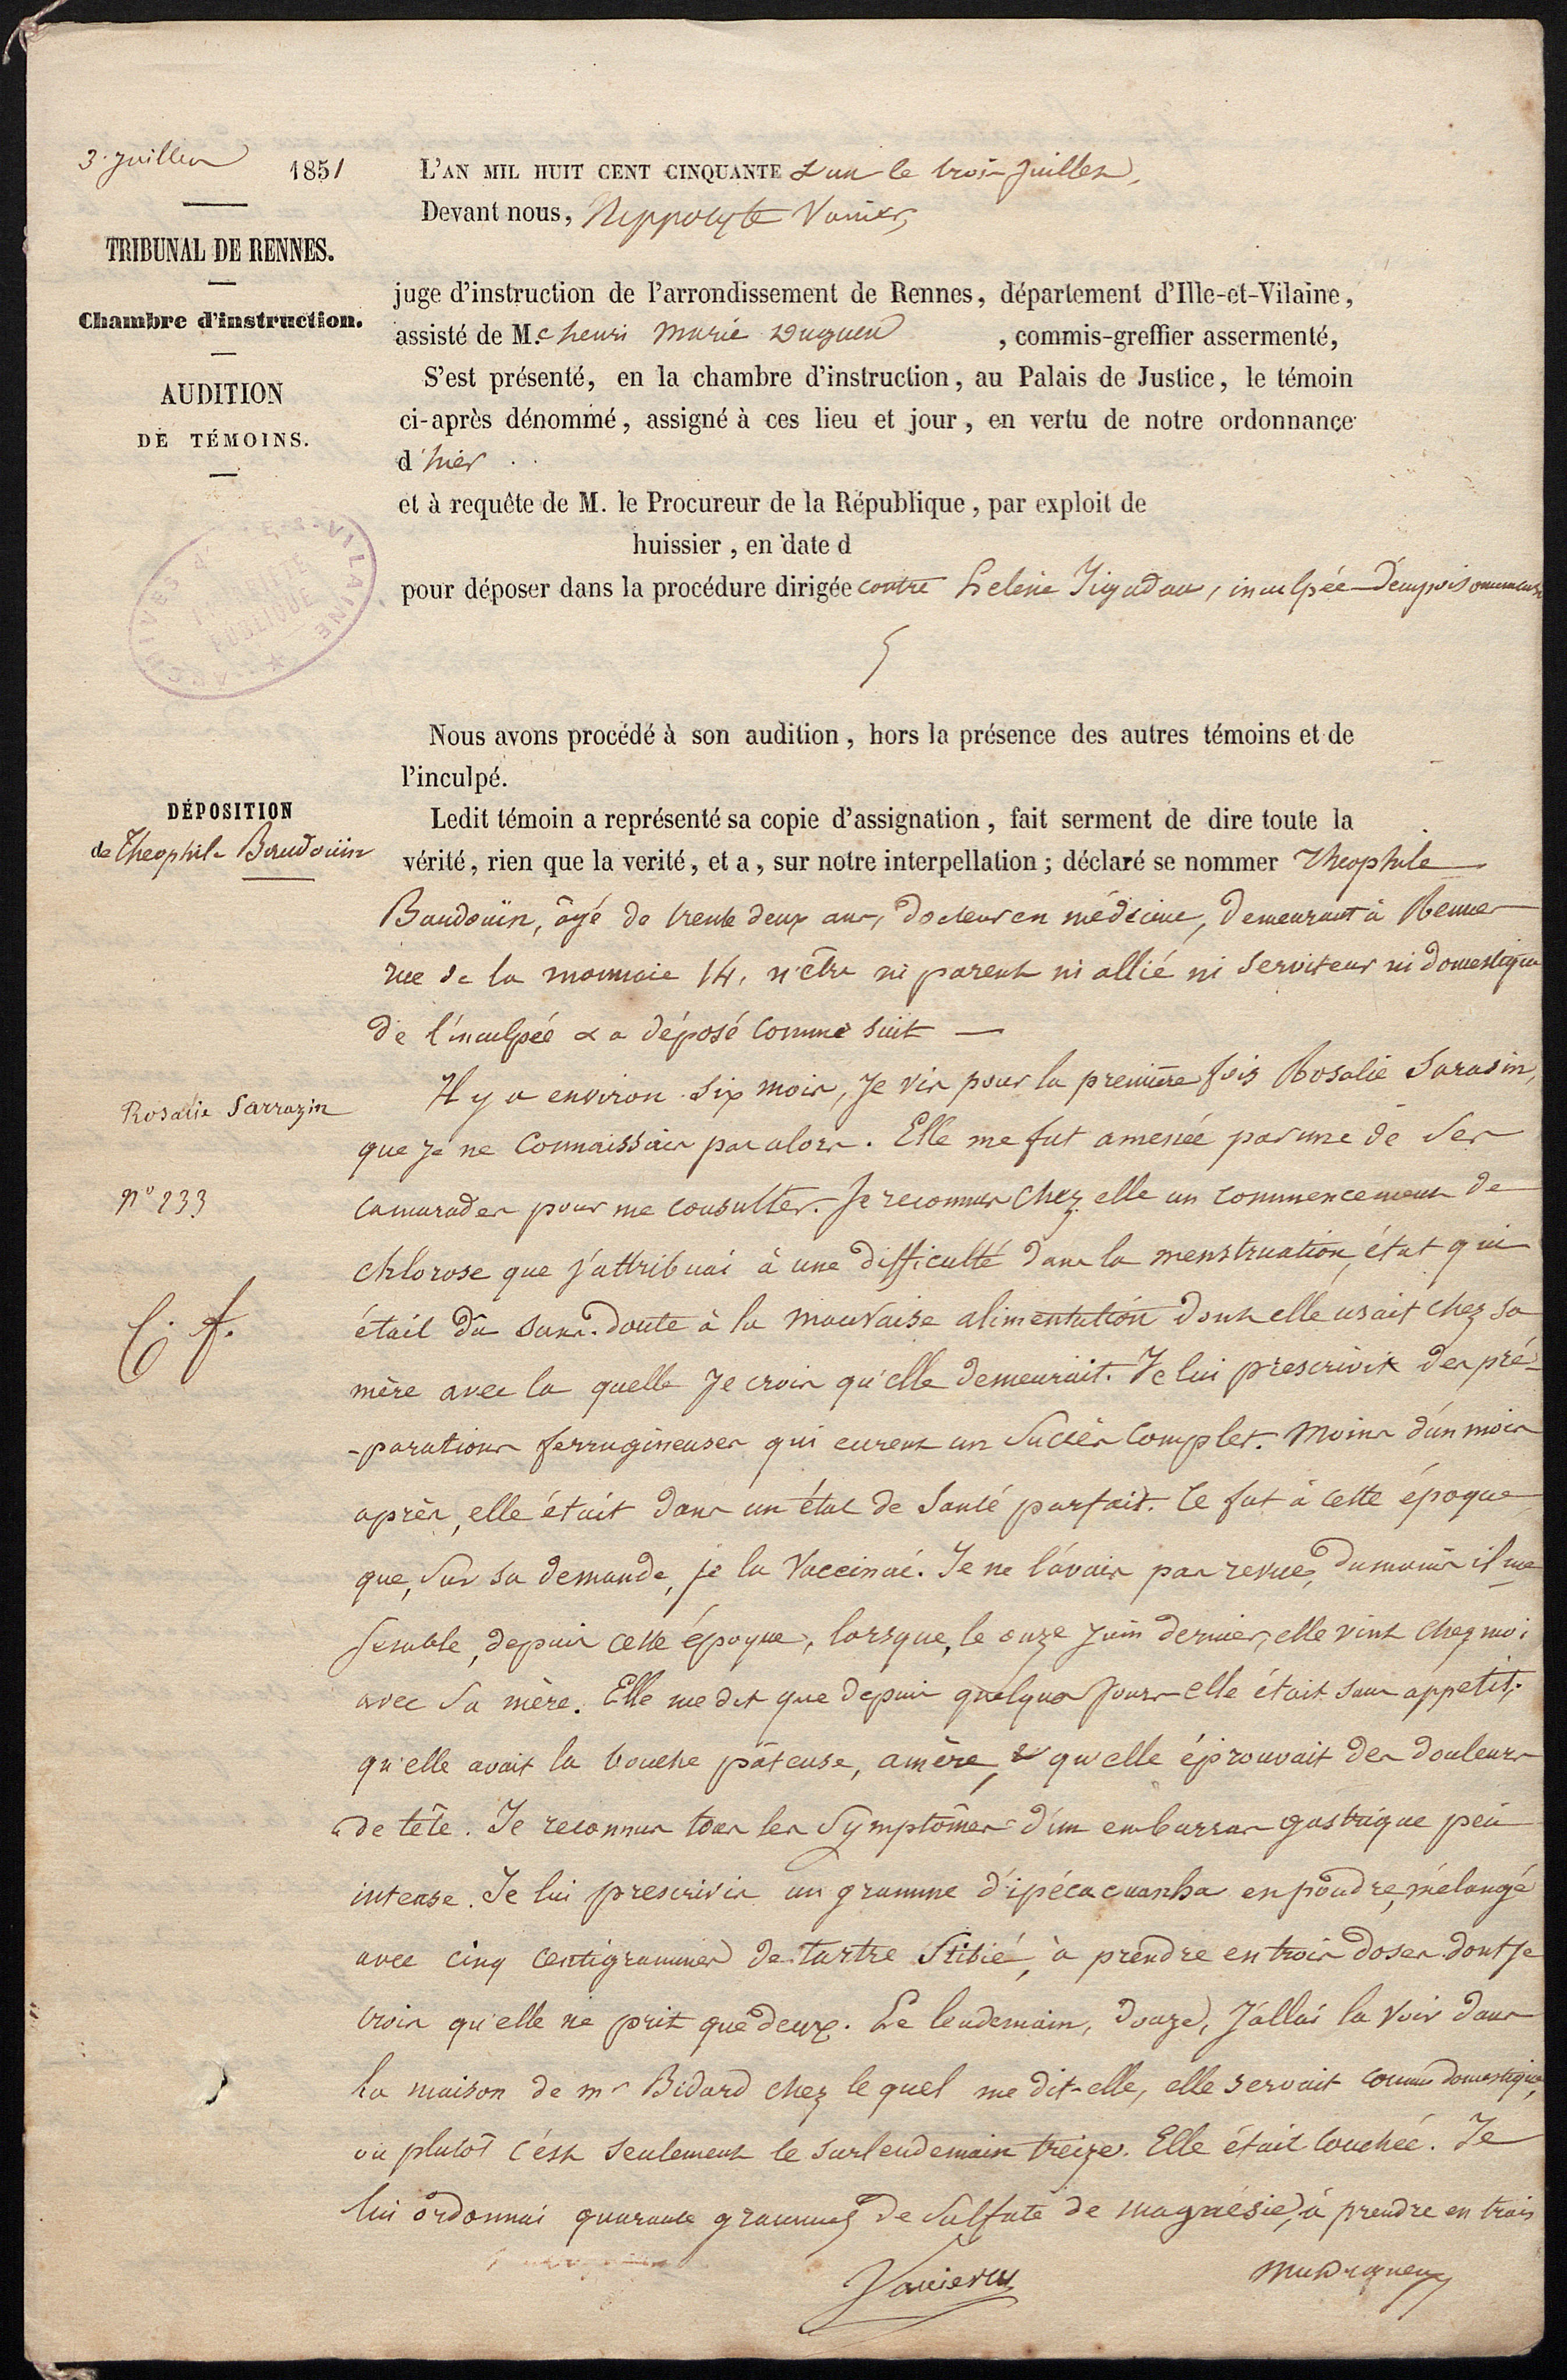 3 juillet 1851
TRIBUNAL DE RENNES.
Chambre d'instruction.
AUDITION
DE TÉMOINS.
L'AN MIL HUIT CENT CINQUANTE & un le trois juillet,
Devant nous, hippolyte Vanier,
juge d'instruction de l'arrondissement de Rennes, département d'Ille-et-Vilaine,
assisté de M.e henri marie , commis-greffier assermenté,
S'est présenté, en la chambre d'instruction, au Palais de Justice, le témoin
ci-après dénommé, assigné à ces lieu et jour, en vertu de notre ordonnance
d'hier
et à requête de M. le Procureur de la République, par exploit de
huissier, en date d
pour déposer dans la procédure dirigée contre helène Jégadau, inculpée d'empoisonnement
ARCHIVES D'ILLE-&-VILAINE
PUBLIQUE
Nous avons procédé à son audition, hors la présence des autres témoins et de
l'inculpé.
DÉPOSITION
de Theophile Baudouin
Ledit témoin a représenté sa copie d'assignation, fait serment de dire toute la
vérité, rien que la verité, et a, sur notre interpellation; déclaré se nommer Theophile
Baudouin, âgé de trente deux ans, docteur en médecine, demeurant à Rennes
rue de la monnaie 14, n'être ni parent ni allié ni serviteur ni domestique
de l'inculpée & a déposé comme suit —
Rosalie Sarrazin
Il y a environ six mois, Je vis pour la première fois Rosalie Sarasin,
que je ne connaissais pas alors. Elle me fut amenée par une de ses
n° 233
camarades pour me consulter. Je reconnus chez elle un commencement de
chlorose que j'attribuai à une difficulté dans la menstruation, état qui
C. f.
était dû sans doute à la mauvaise alimentation dont elle usait chez sa
mère avec la quelle Je crois qu'elle demeurait. Je lui prescrivis des pré-
-parations ferrugineuses qui eurent un succès complet. Moins d'un mois
après, elle était dans un état de santé parfait. Ce fut à cette époque
que, sur sa demande, je la vaccinai. Je ne l'avais pas revue, du moins il me
semble, depuis cette époque, lorsque, le onze juin dernier, elle vint chez moi
avec sa mère. Elle me dit que depuis quelques jours elle était sans appetit,
qu'elle avait la bouche pâteuse, amère, & qu'elle éprouvait des douleurs
de tête. Je reconnus tous les symptômes d'un embarras gastrique peu
intense. Je lui prescrivis un gramme d'ipécacuanha en poudre, mélangé
avec cinq centigrammes de tartre stibié, à prendre en trois doses dont je
crois qu'elle ne prit que deux. Le lendemain, douze, J'allai la voir dans
la maison de mr Bidard chez le quel me dit-elle, elle servait comme domestique,
ou plutôt c'est seulement le surlendemain treize. Elle était couchée. Je
lui ordonnai quarante grammes de sulfate de magnésie, à prendre en trois
Vanier